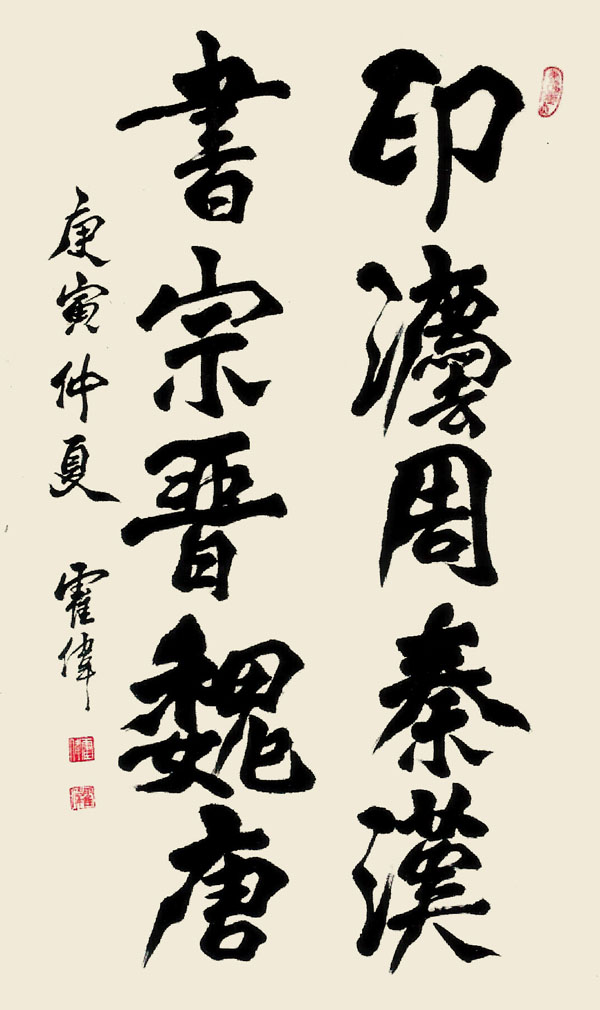 印灋周秦漢
書宗晉魏唐
庚寅仲夏 霍偉